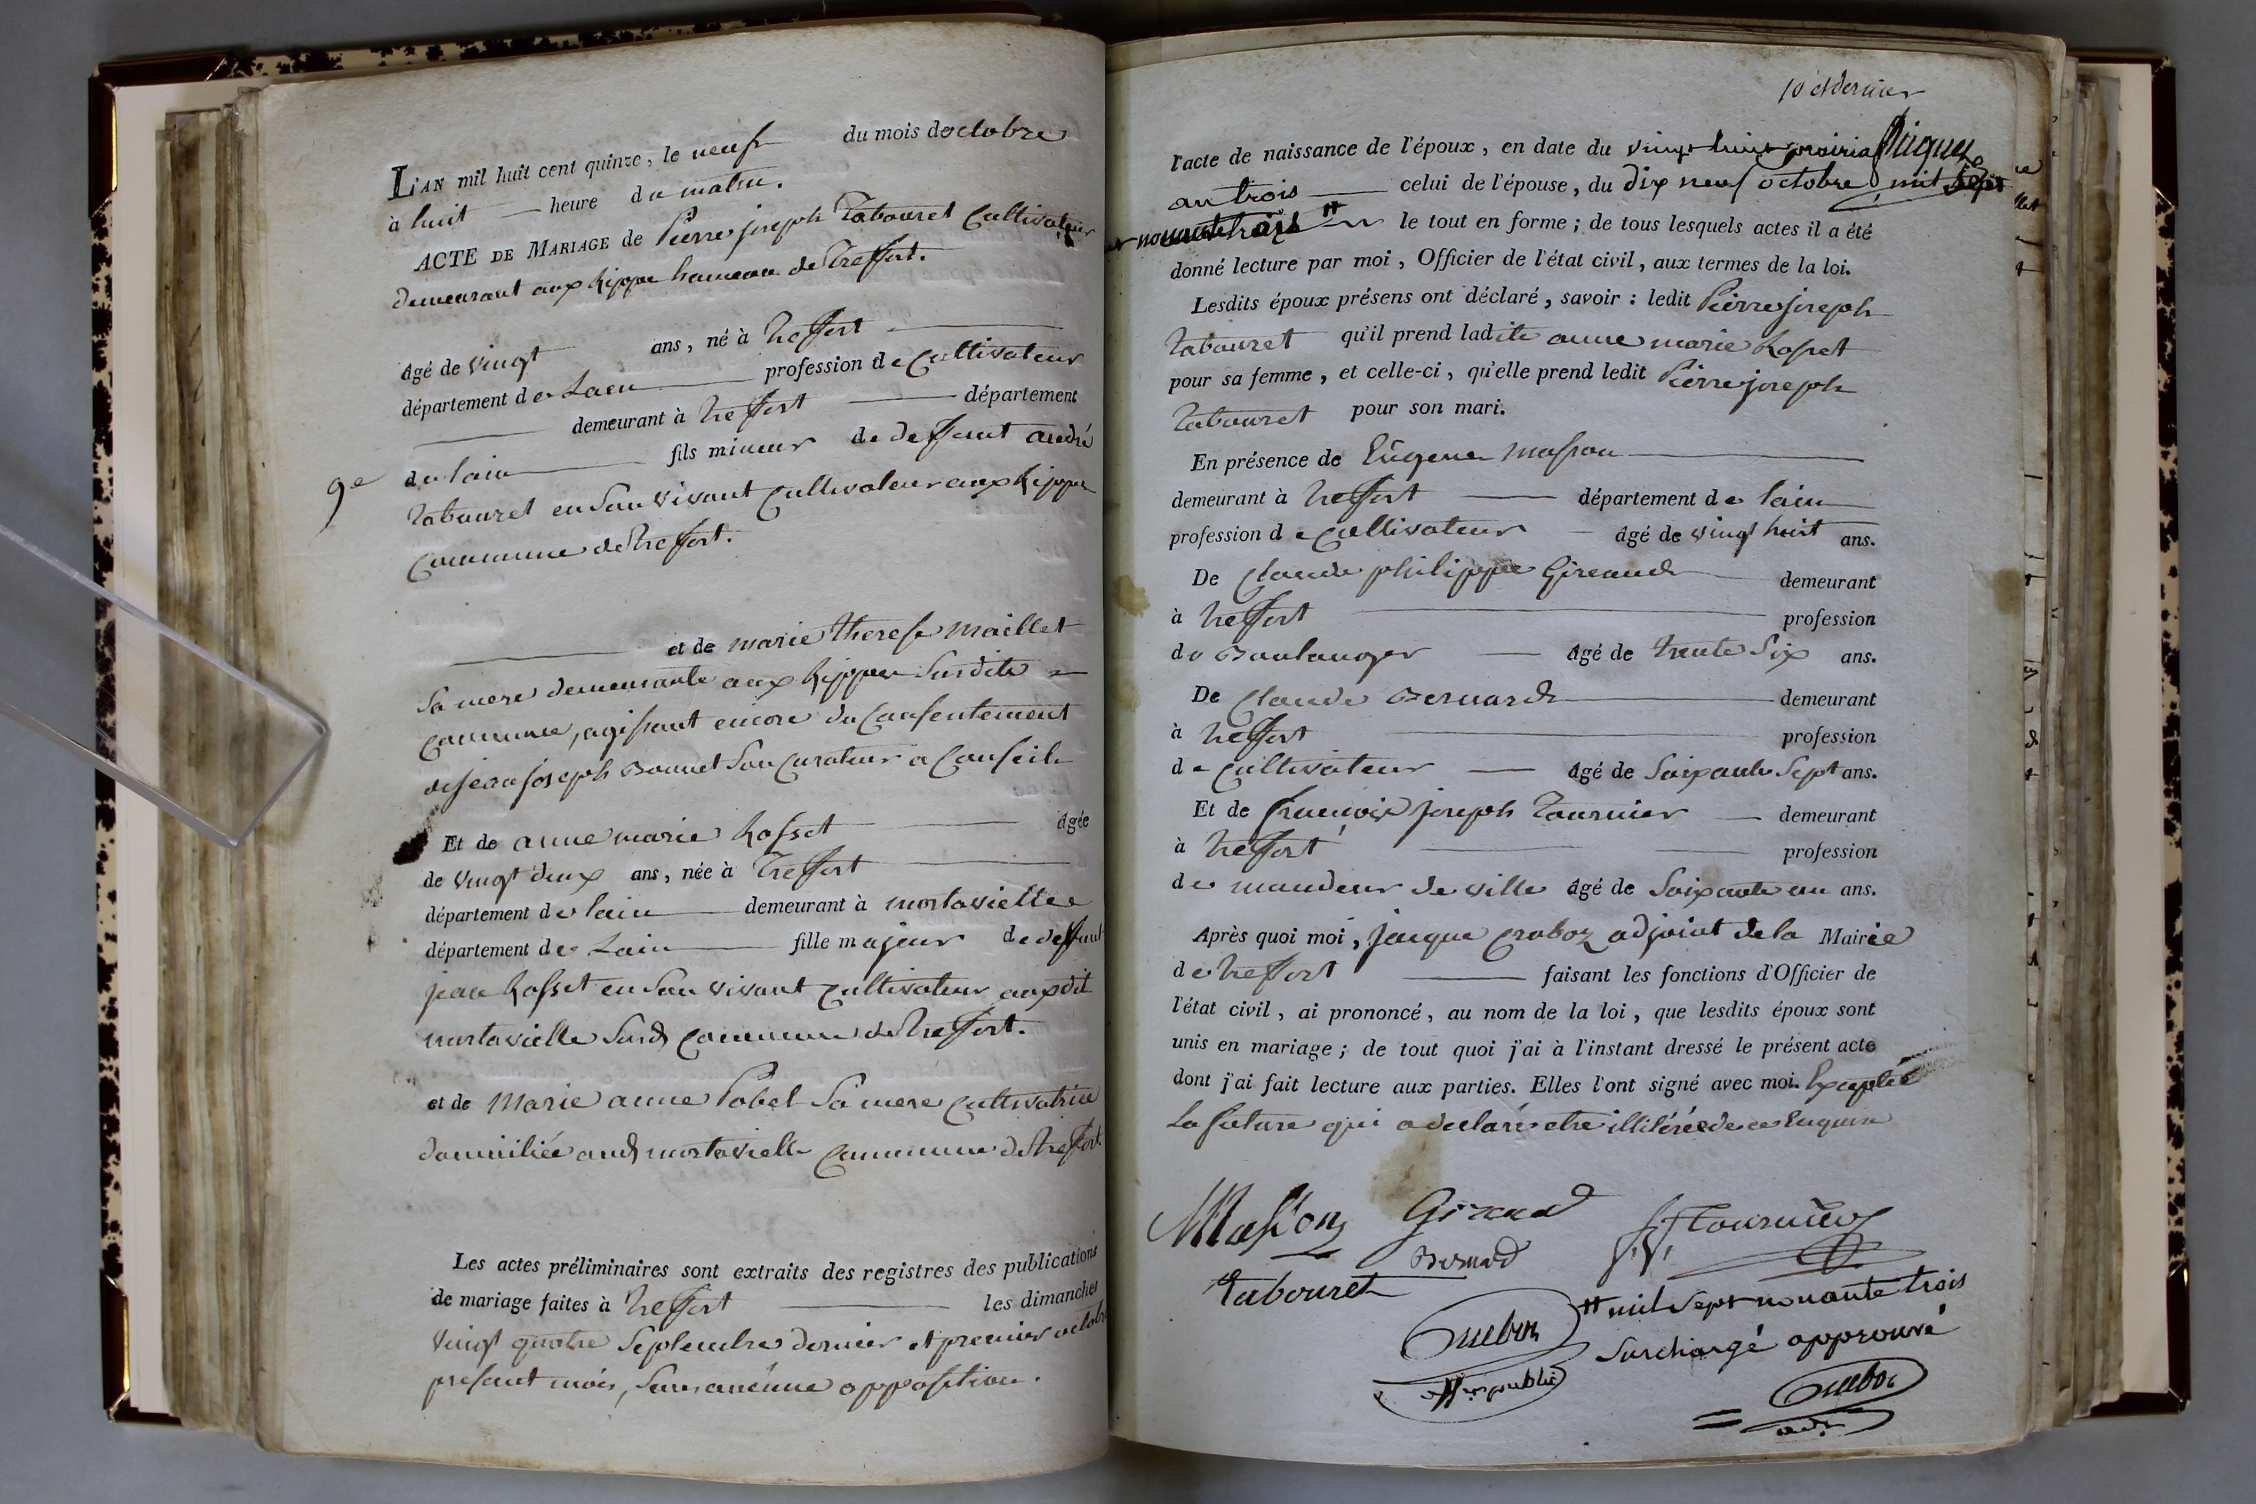 L'AN mil huit cent quinze, le neuf du mois doctobre
à huit heure du matin.
ACTE DE MARIAGE de Pierre joseph Tabouret Cultivateur
demeurant aux Rippes hameau de Treffort.
âgé de vingt ans, né à Treffort
département de Lain profession de Cultivateur
demeurant à Treffort département
9e
de lain fils mineur de deffunt andré
Tabouret en Son vivant Cultivateur aux Rippes
Commune de Treffort.
et de marie therese Maillet
Sa mere demeurante aux Rippes Susdite
Commune, agissant encore du Consentement
de jean joseph Bonnet Son Curateur a Conseil
Et de anne marie Rosset âgée
de vingt deux ans, née à Treffort
département de lain demeurant à mortavielle
département de Lain fille majeur de deffunt
jean Rosset en Son vivant Cultivateur audit
mortavielle Susd Commune de Treffort.
et de Marie anne Pobel Sa mere Cultivatrice
domiciliée aud mortavielle Commune de Treffort.
Les actes préliminaires sont extraits des registres des publications
de mariage faites à Treffort les dimanches
vingt quatre Septembre dernier et premier octobre
present mois, Sans aucune opposition.
10 et dernier
l'acte de naissance de l'époux, en date du vingt huit prairial
an trois celui de l'épouse, du dix neuf octobre mil Sept
nonante trois # le tout en forme; de tous lesquels actes il a été
donné lecture par moi, Officier de l'état civil, aux termes de la loi.
Lesdits époux présens ont déclaré, savoir: ledit Pierre joseph
Tabouret qu'il prend ladite anne marie Rosset
pour sa femme, et celle-ci, qu'elle prend ledit Pierre joseph
Tabouret pour son mari.
En présence de Eugene Masson
demeurant à Treffort département de lain
profession de Cultivateur âgé de vingt huit ans.
De Claude philippe Gireaud demeurant
à Treffort profession
de Boulanger âgé de trente Six ans.
De Claude Bernard demeurant
à Treffort profession
de Cultivateur âgé de Soixante Sept ans.
Et de francois joseph Tournier demeurant
à Treffort profession
de mandeur de ville âgé de Soixante un ans.
Après quoi moi, jacque adjoint de la Mairie
de Treffort faisant les fonctions d'Officier de
l'état civil, ai prononcé, au nom de la loi, que lesdits époux sont
unis en mariage; de tout quoi j'ai à l'instant dressé le présent acte
dont j'ai fait lecture aux parties. Elles l'ont signé avec moi. Exceptée
La future qui a declaré etre illiterée de ce Enquise
Masson Giraud f. j. Tournier
Bernard
Tabouret
# mil Sept nonante trois
Surchargé approuvé